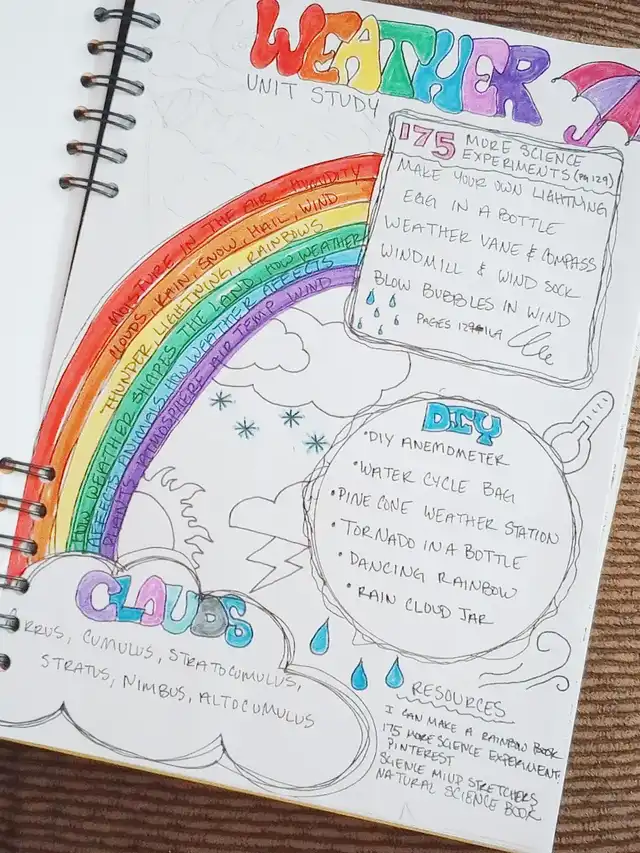 WEATHER
UNIT STUDY
175 MORE SCIENCE
EXPERIMENTS (PG 129)
MAKE YOUR OWN LIGHTNING
EGG IN A BOTTLE
WEATHER VANE & COMPASS
WINDMILL & WIND SOCK
BLOW BUBBLES IN WIND
PAGES 129
MOISTURE IN THE AIR - HUMIDITY
CLOUDS, RAIN, SNOW, HAIL, WIND
THUNDER, LIGHTNING, RAINBOWS
HOW WEATHER SHAPES THE LAND, HOW WEATHER
AFFECTS ANIMALS, HOW WEATHER AFFECTS
PLANTS ATMOSPHERE AIR TEMP WIND
DIY
•DIY ANEMOMETER
•WATER CYCLE BAG
•PINE CONE WEATHER STATION
•TORNADO IN A BOTTLE
•DANCING RAINBOW
•RAIN CLOUD JAR
CLOUDS
RRUS, CUMULUS, STRATOCUMULUS,
STRATUS, NIMBUS, ALTOCUMULUS
RESOURCES
I CAN MAKE A RAINBOW BOOK
175 MORE SCIENCE EXPERIMENTS
PINTEREST
SCIENCE MIND STRETCHERS
NATURAL SCIENCE BOOK